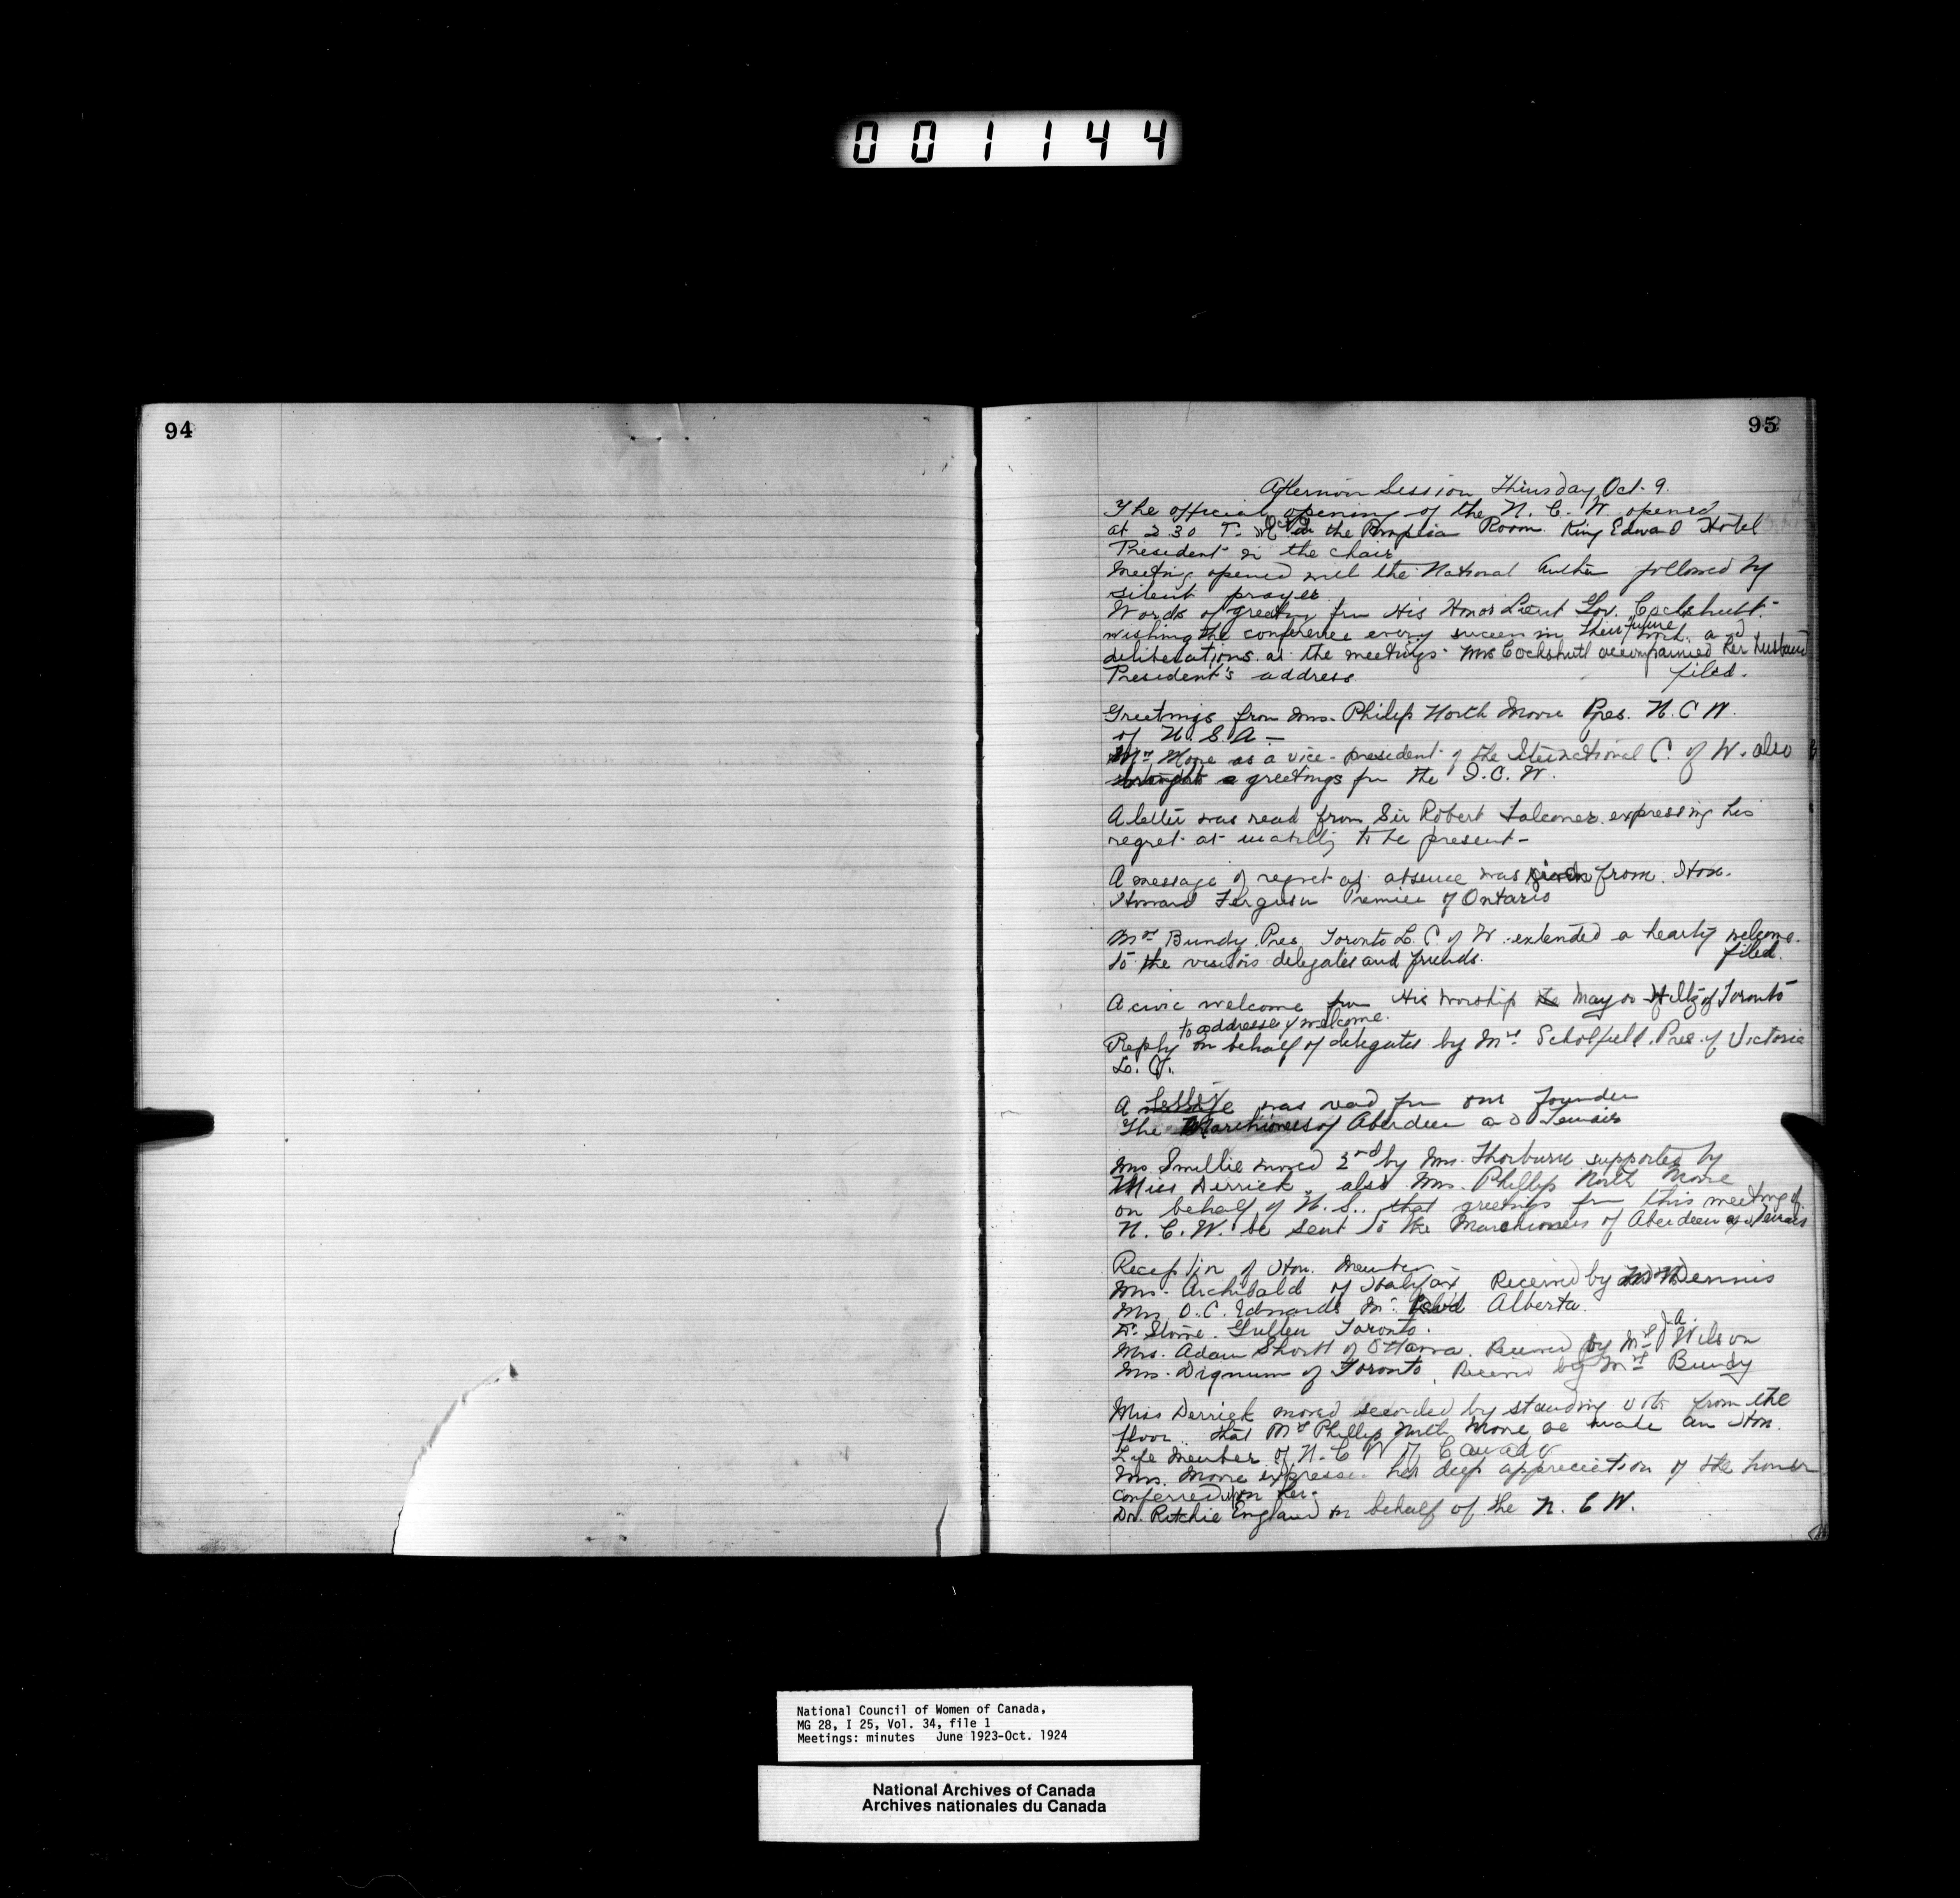 001144
94
95
Afternoon Session Thursday Oct. 9.
The official opening of the N. C. W. opened
at 2 30 P. M. in the Room King Edward Hotel
President in the chair
Meeting opened with the National Anthem followed by
silent prayer
Words of greeting from His Honor Lieut Gov. Cockshutt
wishing the conference every success in their future work and
deliberations at the meetings. Mrs Cockshutt accompanied her husband
President's address filed.
Greetings from Mrs. Philip North Moore Pres. N. C W.
of U. S. A –
Mrs Moore as a vice-president of the International C. of W. also
brought greetings from the I. C. W.
A letter was read from Sir Robert Falconer expressing his
regret at inability to be present –
A message of regret at absence was given from Hon.
Howard Ferguson Premier of Ontario
Mrs Bundy Pres. Toronto L. C of W. extended a hearty welcome
to the visitors delegates and friends. filed.
A civic welcome from His Worship the Mayor Hiltz of Toronto
to addresses of welcome.
Reply on behalf of delegates by Mrs. Scholfield. Pres. of Victoria
L. C.
A was read from our founder
The Marchioness of Aberdeen and Temair
Mrs Smillie moved 2nd by Mrs. Thorburn supported by
Miss Derrick, also Mrs. Phillip North Moore
on behalf of U. S., that greetings from this meeting of
N. C. W. be sent to the Marchioness of Aberdeen and Temair
Reception of Hon. Members
Mrs. Archibald of Halifax Received by Mrs Dennis
Mrs O. C. Edwards Alberta.
Dr. Stowe Gullen Toronto.
Mrs. Adam Shortt of Ottawa. Received by Mrs J. A. Wilson
Mrs. Dignum of Toronto, Received by Mrs Bundy
Miss Derrick moved seconded by standing vote from the
floor that Mrs Phillip North Moore be made an Hon.
Life Member of N. C W of Canada
Mrs. Moore expressed her deep appreciation of the honor
conferred upon her.
Dr. Ritchie England on behalf of the N. C W.
National Council of Women of Canada,
MG 28, I 25, Vol. 34, file 1
Meetings: minutes June 1923-Oct. 1924
National Archives of Canada
Archives nationales du Canada